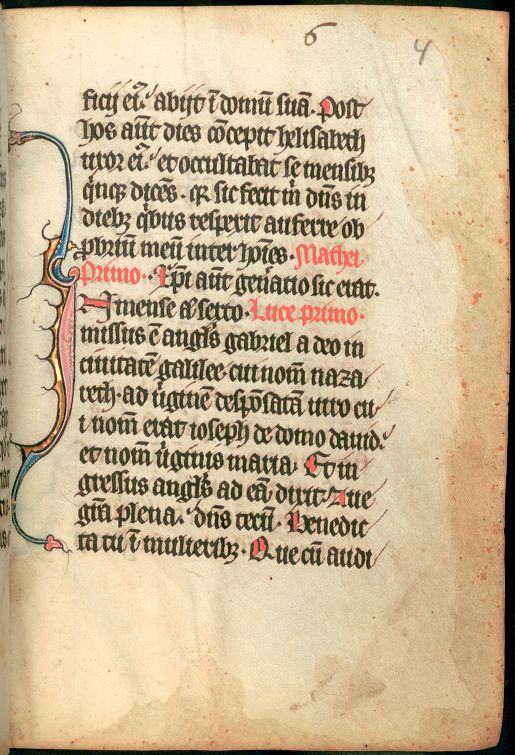 6
4
ficij ei᷒. abijt ī domū suā. Post
hos aūt dies cōcepit helisabeth
uxor ei᷒. et occultabat se mensibꝫ
qͥnqꝫ dicēs. qꝛ sic fecit m̄ dn̄s in
diebꝫ qͥbus respexit auferre ob
ꝓbriū meū inter hoīes. Mathei
Primo. Xp̄i aūt gen̄atio sic erat.
In mense aū sexto. Luce primo.
missus ē angl̄s gabriel a deo in
ciuitatē galilee. cui nom̄ naza
reth. ad v̄ginē despōsatā uiro cu
i nom̄ erat ioseph de domo dauid.
et nom̄ v̄ginis maria. Et in
gressus angl̄s ad eā dixit. Aue
gr̄a plena. dn̄s tecū. Benedic
ta tu ī mulieribꝫ. Que cū audi